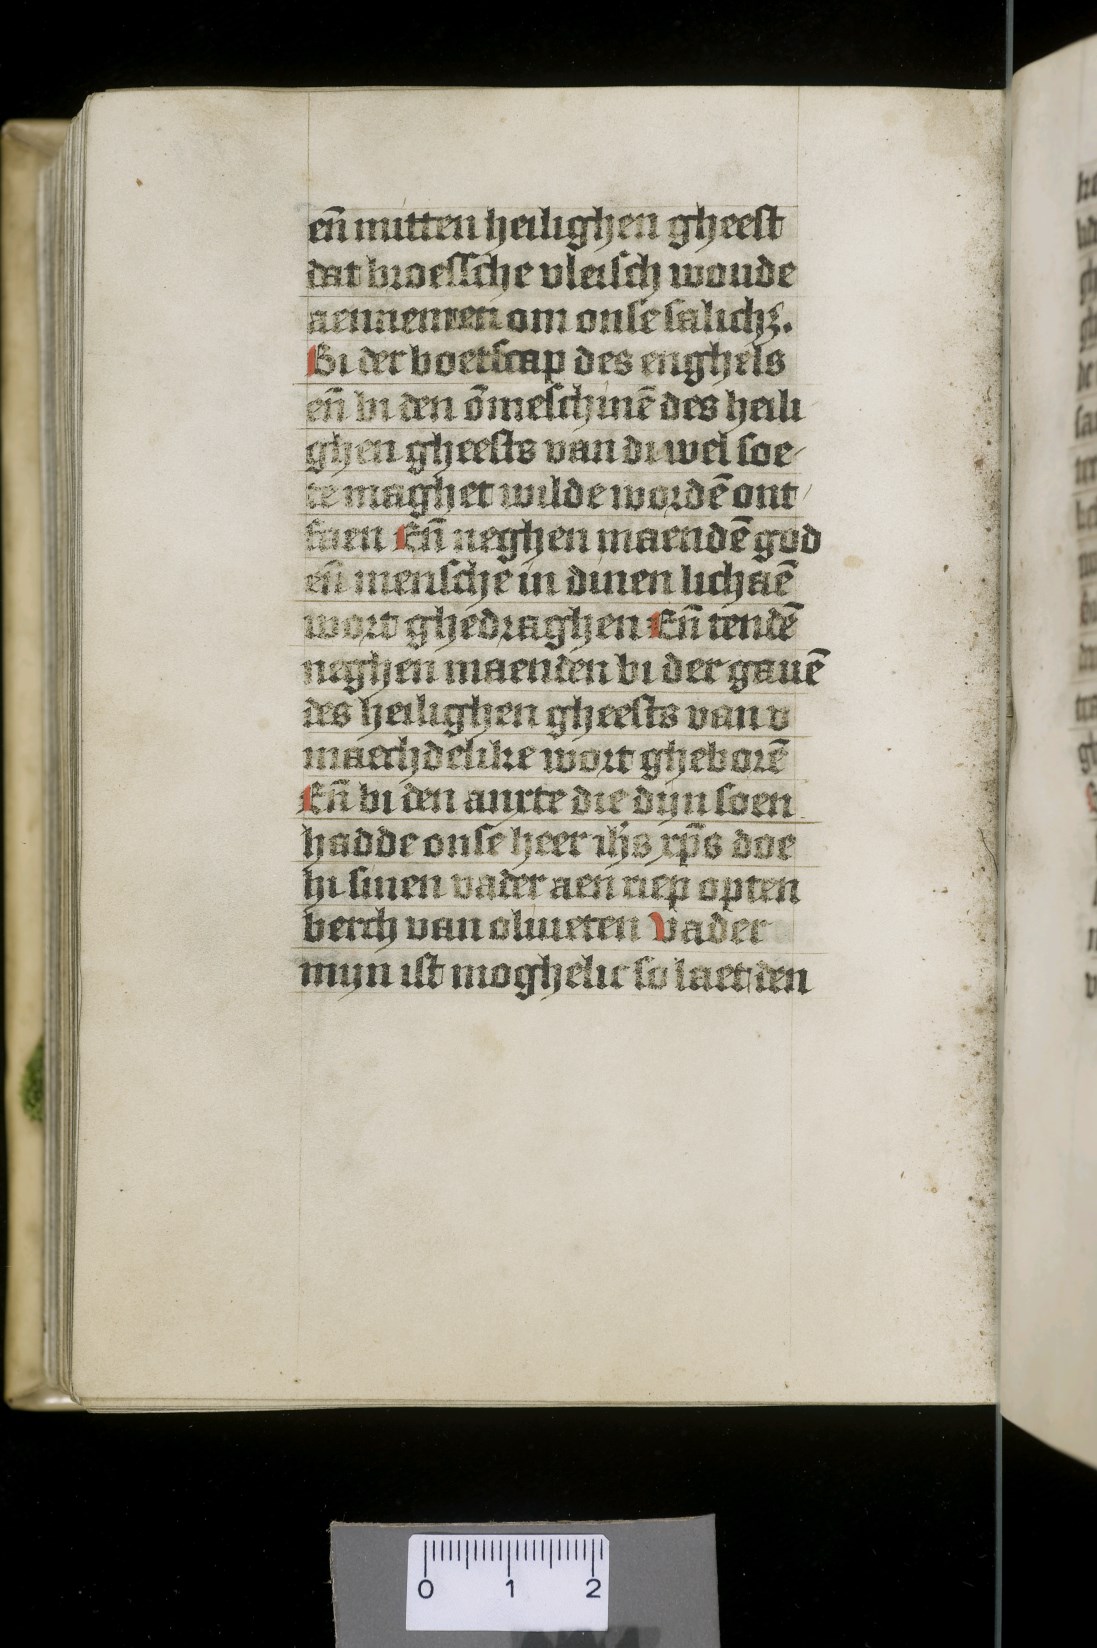 en̄ mitten heilighen gheest
dat broessche vleisch woude
aennemen om onse salichꝫ.
Bi der boetscap des enghels
en̄ bi den ōmeschinē des heili
ghen gheests van di wel soe
te maghet wilde wordē ont
faen En̄ neghen maendē god
en̄ mensche in dinen lichaē
wort ghedraghen En̄ tendē
neghen maenden bi der gauē
des heilighen gheests van v
maechdelike wort gheborē
En̄ bi den anxte die dijn soen
hadde onse heer ih̄s xp̄s doe
hi sinen vader aen riep opten
berch van oliueten Vader
mijn ist moghelic so laet den
0 1 2